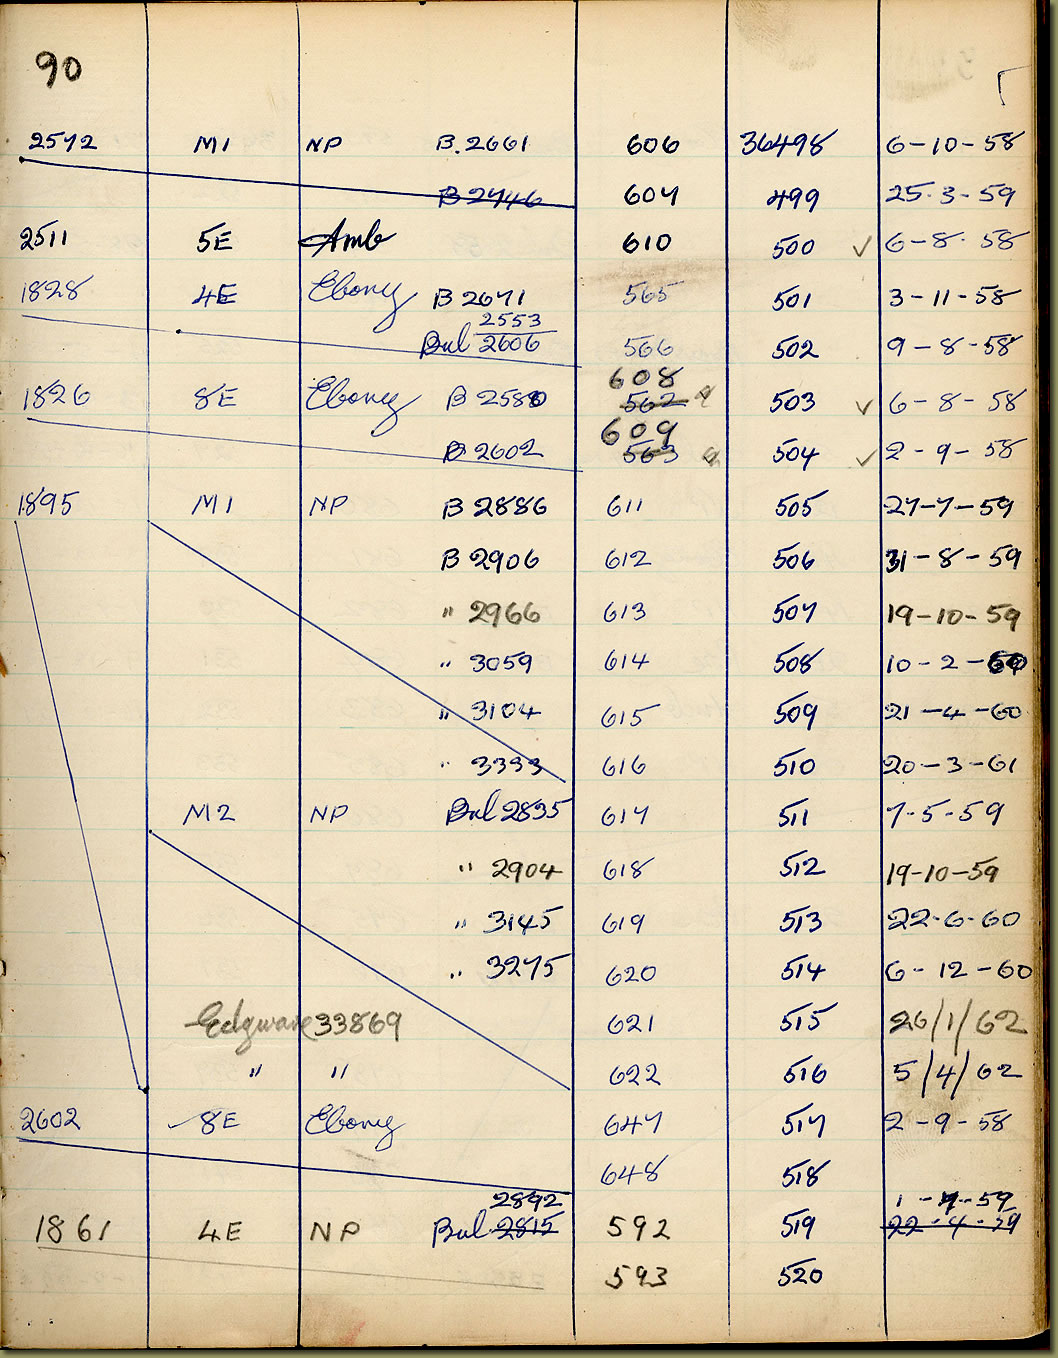 90
2572 M1 NP B.2661 606 36498 6-10-58
B 2746 607 499 25.3-59
2511 5E Amb 610 500 ✓ 6-8-58
1828 4E Ebony B 2671 565 501 3-11-58
2553
Bul 2606 566 502 9-8-58
608
1826 8E Ebony B 2580 562 503 ✓ 6-8-58
609
B 2602 563 504 ✓ 2-9-58
1895 M1 NP B 2886 611 505 27-7-59
B 2906 612 506 31-8-59
" 2966 613 507 19-10-59
" 3059 614 508 10-2-60
" 3104 615 509 21-4-60
" 3393 616 510 20-3-61
M2 NP Bul 2835 617 511 7-5-59
" 2904 618 512 19-10-59
" 3145 619 513 22-6-60
" 3275 620 514 6-12-60
Edgware 33869 621 515 26/1/62
" " 622 516 5/4/62
2602 8E Ebony 647 517 2-9-58
648 518
2892 1-7-59
1861 4E NP Bul 2815 592 519 22-4-59
593 520